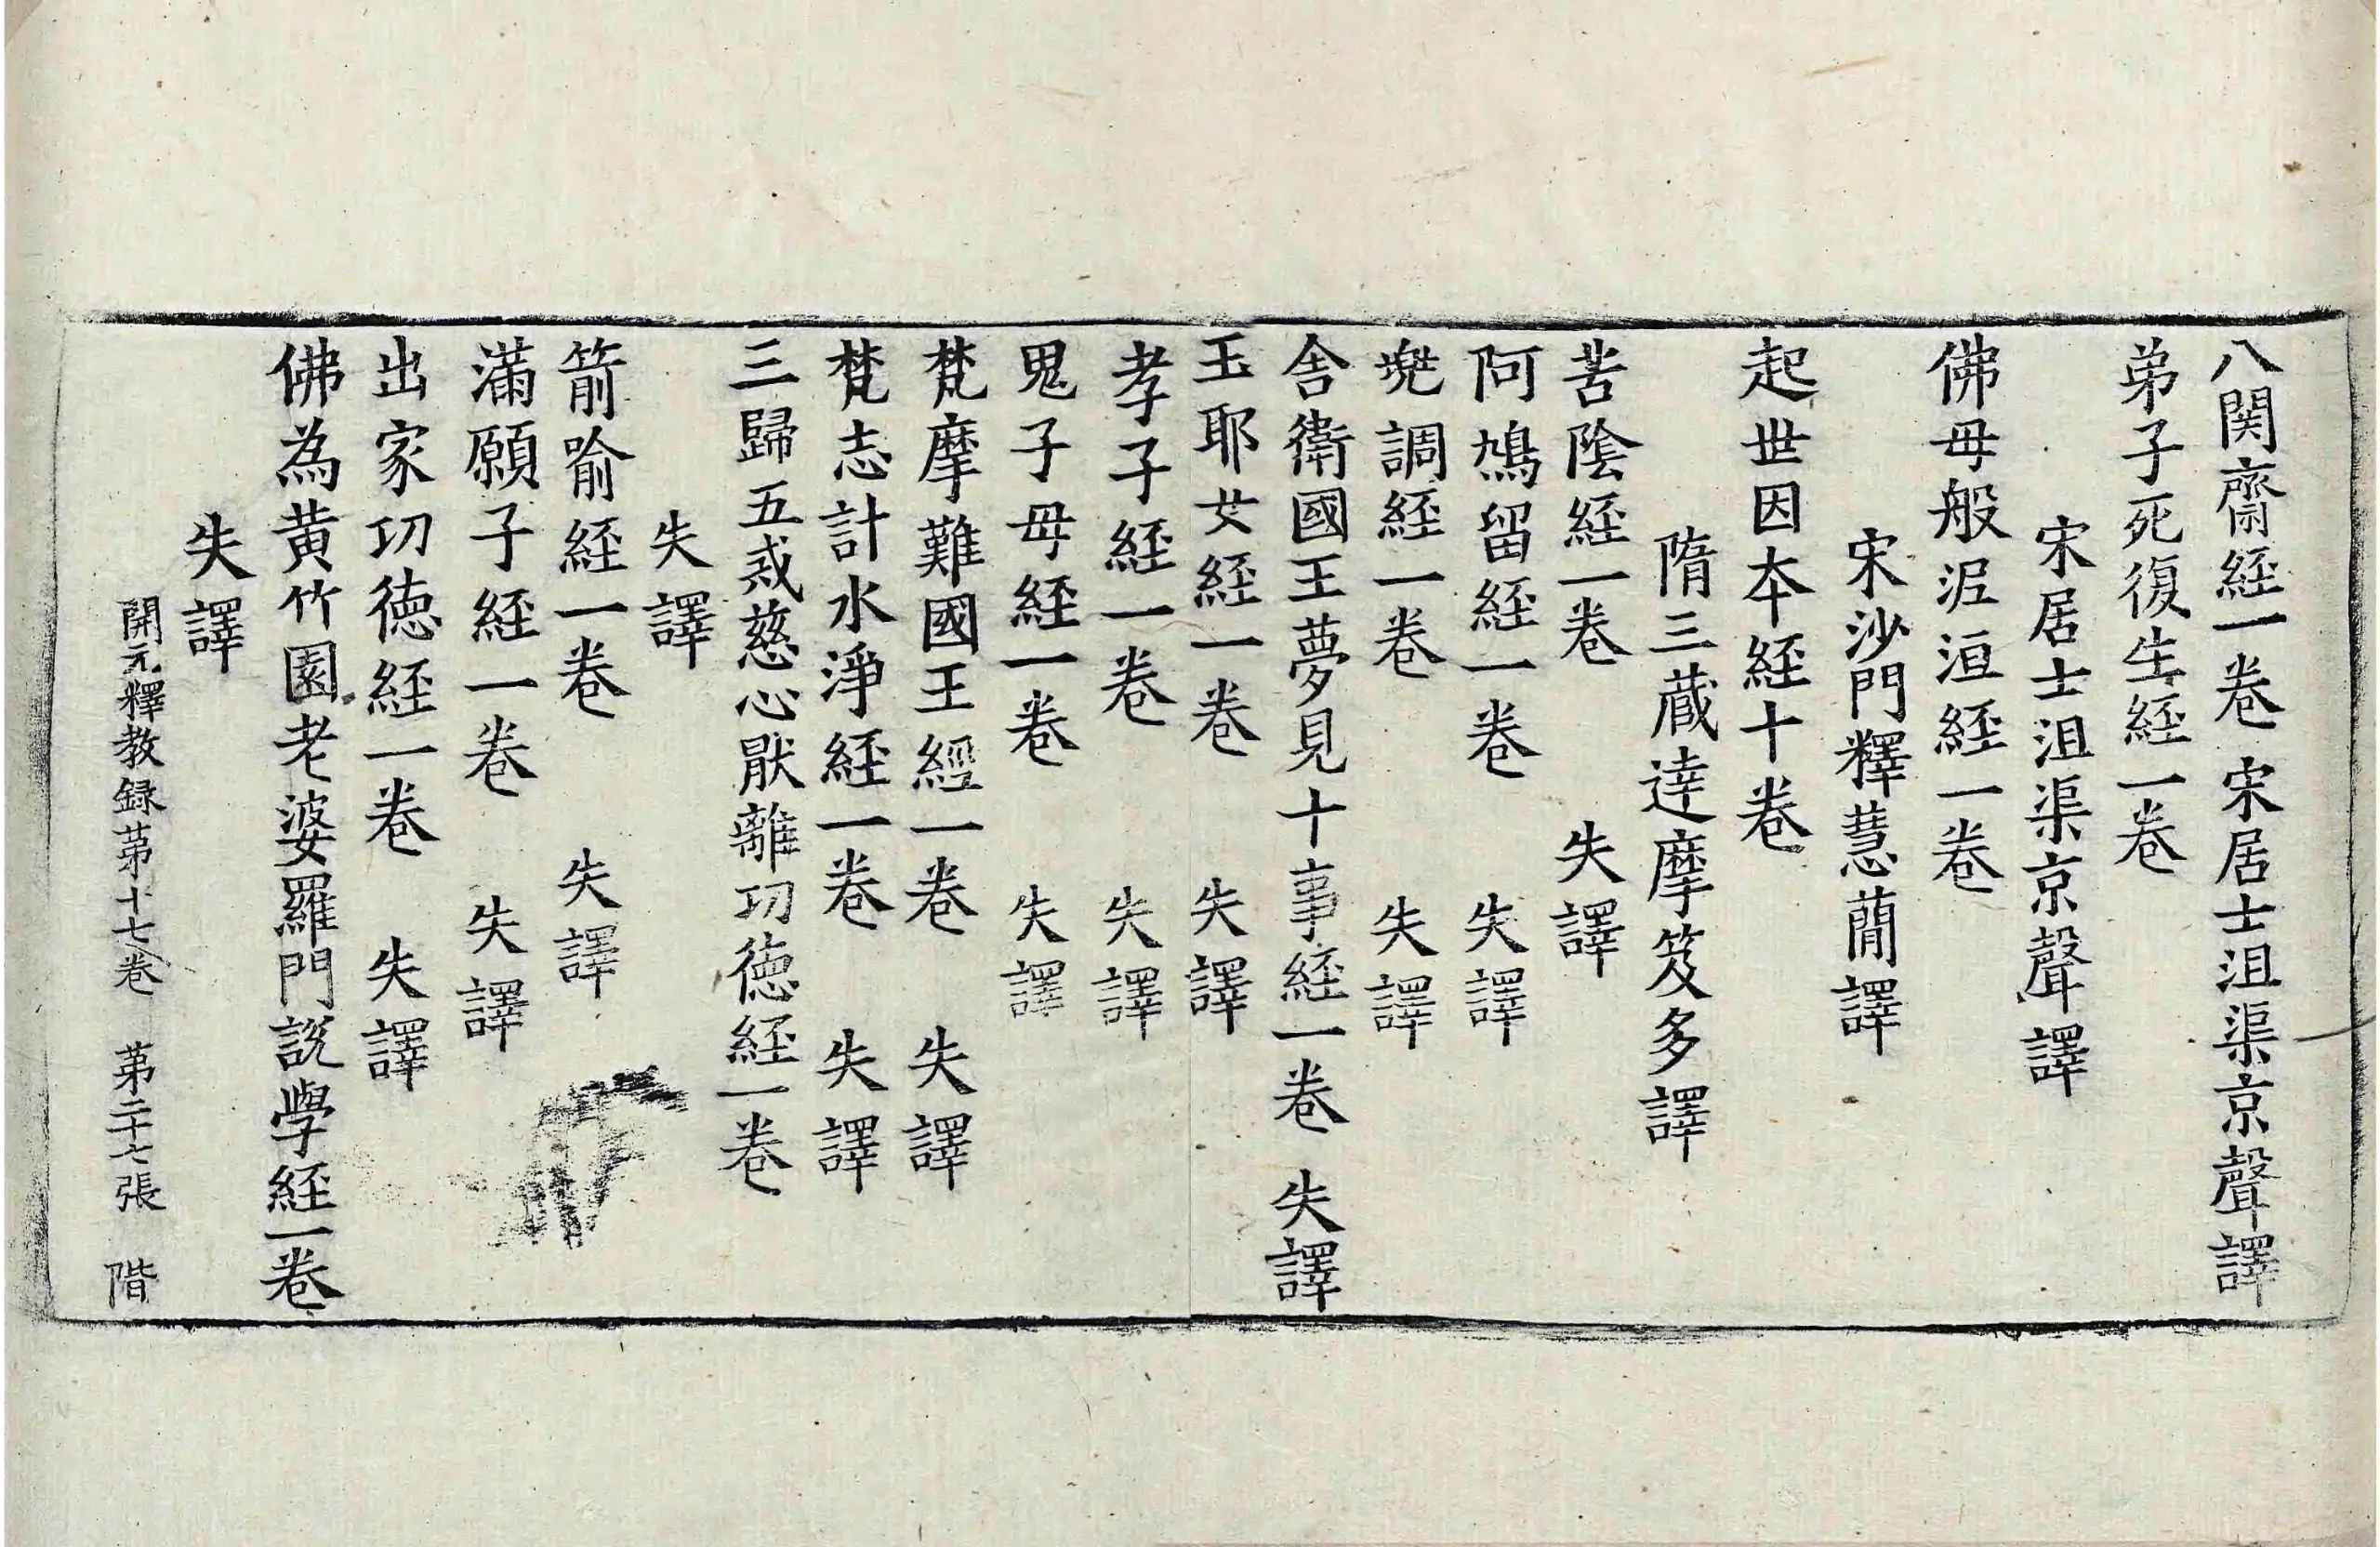 八関齋経一卷 宋居士沮渠京聲譯
弟子死復生経一卷
宋居士沮渠京聲譯
佛母般泥洹経一卷
宋沙門釋慧蕳譯
起世因本経十卷
隋三蔵達摩笈多譯
苦陰経一卷 失譯
阿鳩留経一卷 失譯
兜調経一卷 失譯
舍衛國王夢見十事経一卷 失譯
玉耶女経一卷 失譯
孝子経一卷 失譯
鬼子母経一卷 失譯
梵摩難國王經一卷 失譯
梵志計水淨経一卷 失譯
三歸五戒慈心厭離功徳経一卷
失譯
箭喻経一卷 失譯
滿願子経一卷 失譯
出家功徳経一卷 失譯
佛為黄竹園老婆羅門説學経一卷
失譯
開元釋教録苐十七卷 苐二十七張 階